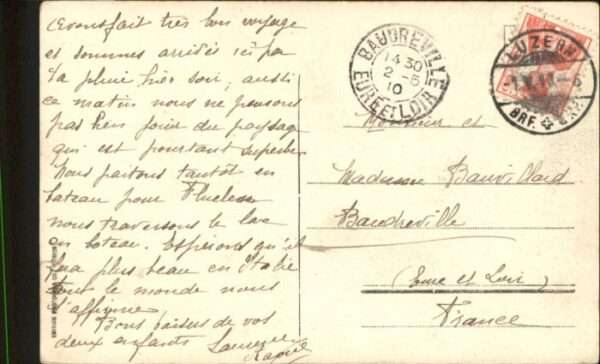 Avons fait très bon voyage
et sommes arrivés ici par
la pluie hier soir, aussi
ce matin nous ne pouvons
pas bien jouir du paysage
qui est pourtant superbe.
Nous partons tantôt en
bateau pour Fluelen
nous traversons le lac
en bateau. Espérons qu'il
fera plus beau en Italie
tout le monde nous
l'affirme.
Bons baisers de vos
deux enfants
Raoul
BAUDREVILLE
14 30
2 - 5
10
EURE ET LOIR
LUZERN
BRF.
Monsieur et
Madame Bauvillard
Baudreville
(Eure et Loir)
France